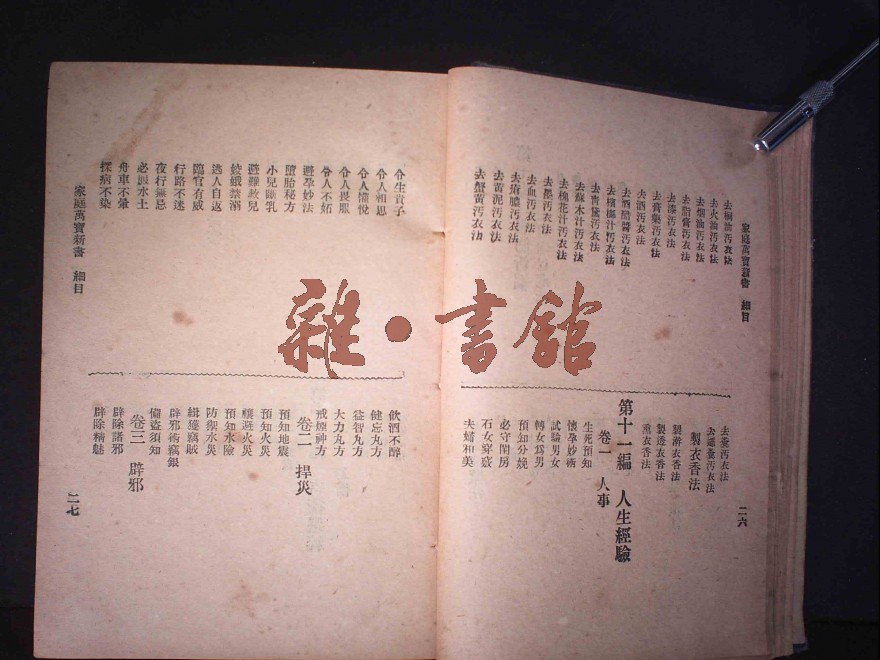 家庭萬寶新書 細目
去桐油汚衣法
去火油汚衣法
去烟油汚衣法
去脂膏汚衣法
去漆汚衣法
去膏藥汚衣法
去酒汚衣法
去酒醋醬汚衣法
去檳榔汁汚衣法
去青黛汚衣法
去蘇木汁汚衣法
去槐花汁汚衣法
去墨汚衣法
去血汚衣法
去瘡膿汚衣法
去黃泥汚衣法
去蟹黃汚衣法
去糞汚衣法
製衣香法
製澣衣香法
熏衣香法
第十一編 人生經驗
卷一 人事
生死預知
懷孕妙術
試驗男女
轉女爲男
預知分娩
必守閨房
石女穿竅
夫婦和美
二六
令生貴子
令人相思
令人懽悅
令人畏服
令人不妬
避孕妙法
墮胎秘方
小兒斷乳
避難救兒
蛟蛾禁溺
逃人自返
臨官有威
行路不迷
夜行無忌
必服水土
舟車不暈
探病不染
家庭萬寶新書 細目
飲酒不醉
健忘丸方
益智丸方
大力丸方
戒煙神方
卷二 捍災
預知地震
預知火災
禳避火災
預知水險
防禦水災
緝獲竊賊
辟邪術竊銀
備盜須知
卷三 辟邪
辟除諸邪
辟除精魅
二七
雜·書館